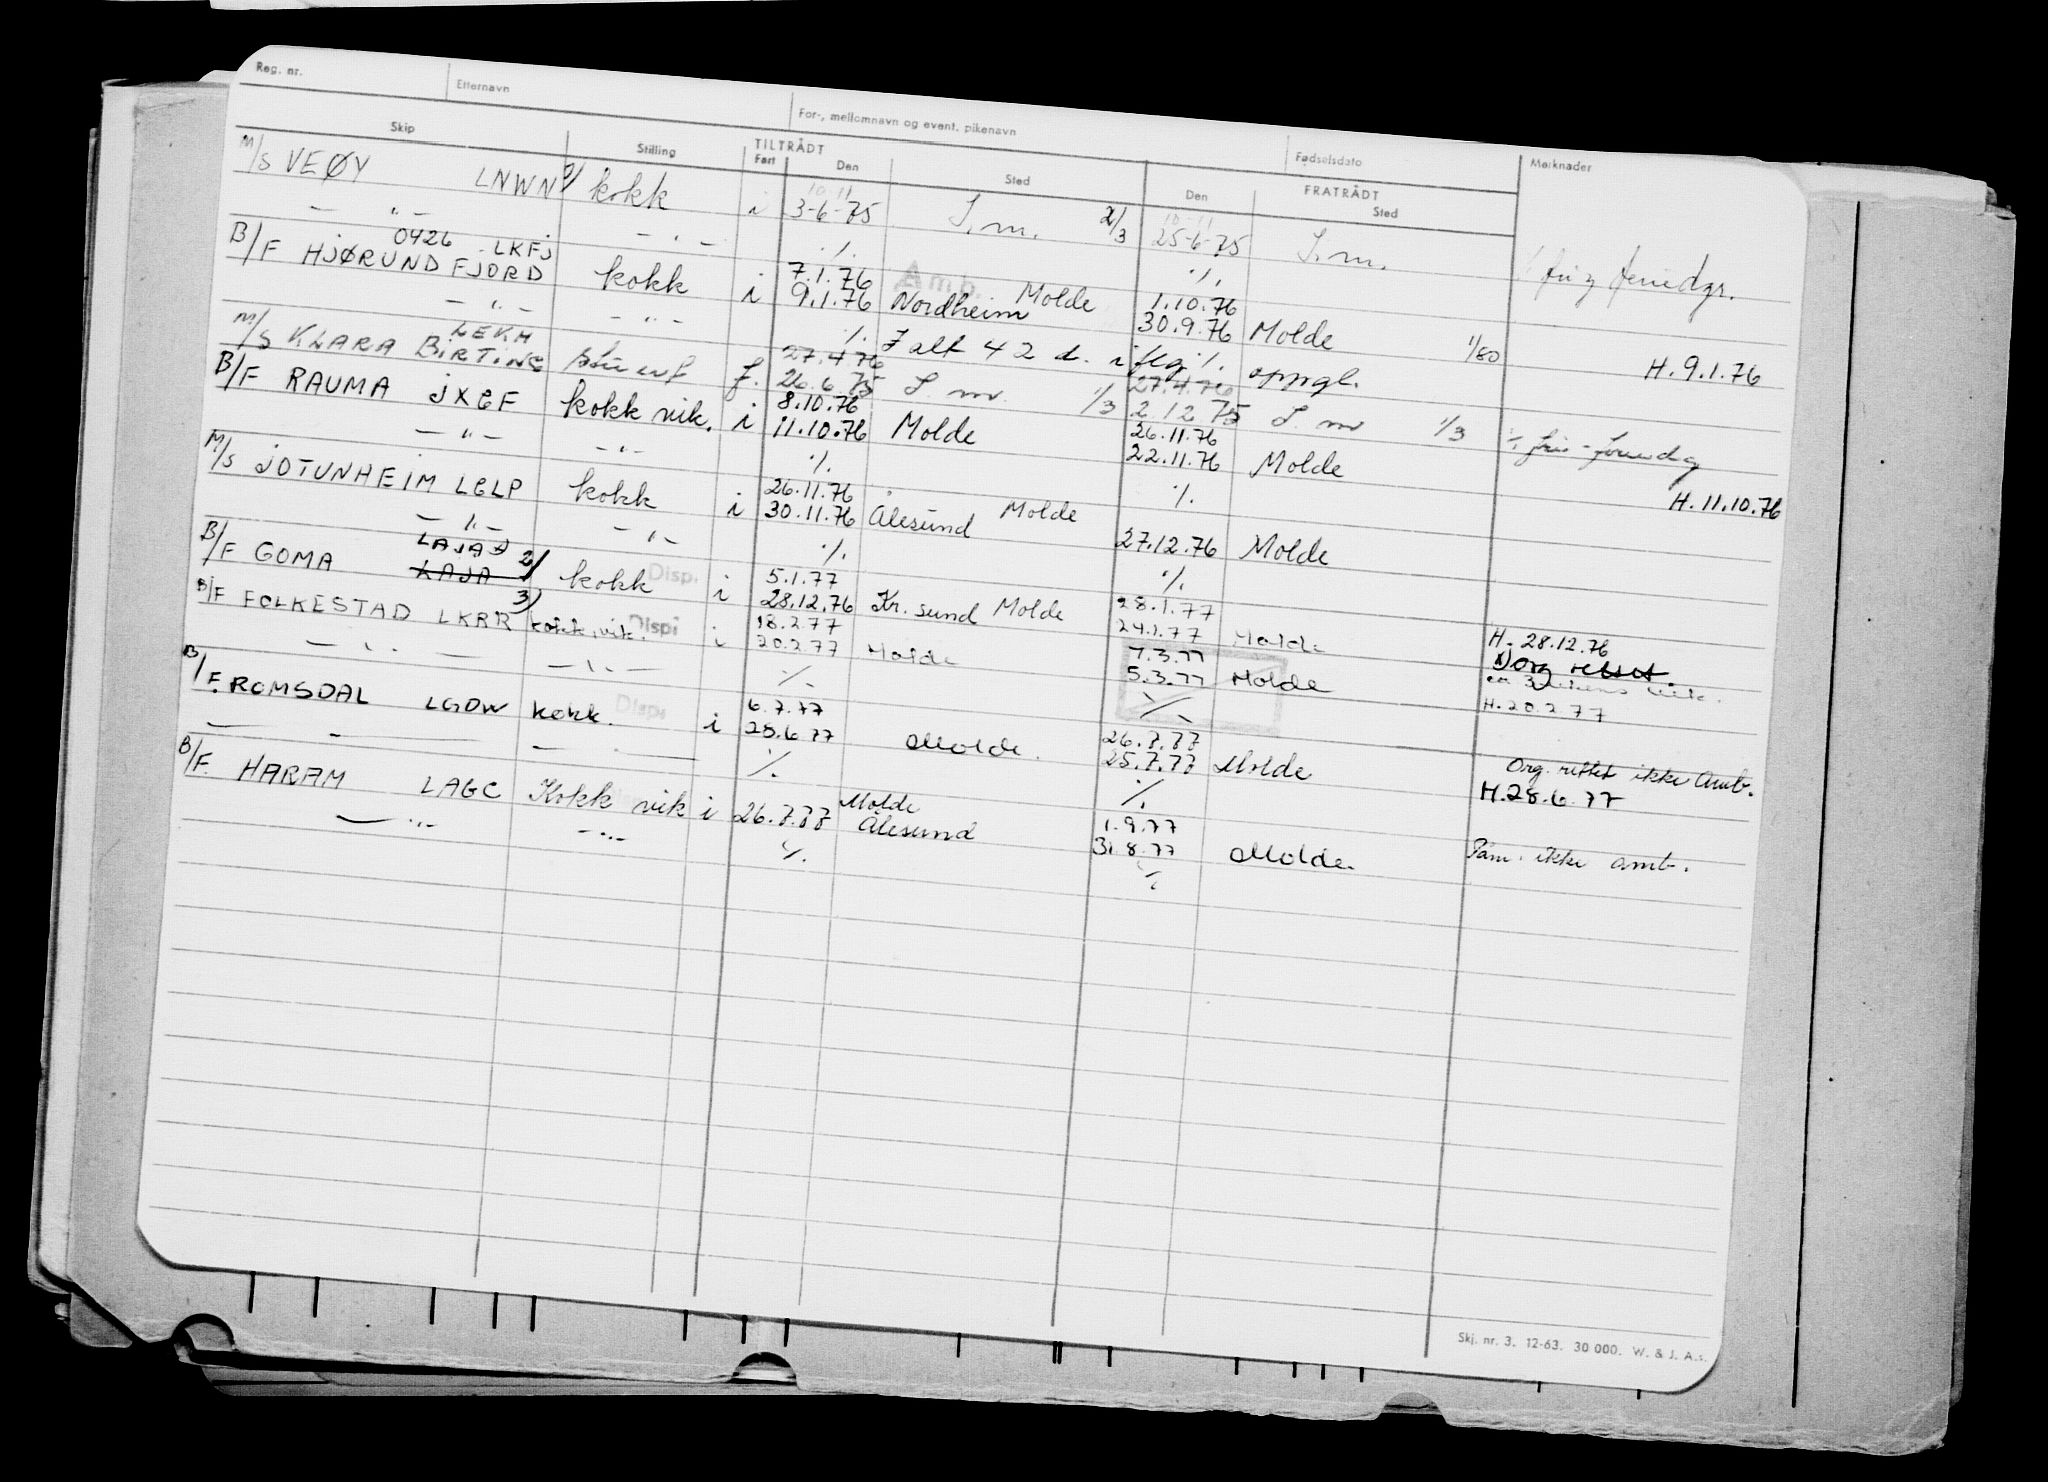 Reg. nr. Etternavn For-, mellomnavn og event. pikenavn Fødselsdato Merknader
Skip Stilling TILTRÅDT FRATRÅDT
Fart Den Sted Den Sted
M/S VEØY LNWN kokk i 10-11 3-6-75 S.m. 2/3 10-11 25-6-75 S.m.
— " — — " — ·/· ·/·
0426 LKFJ
B/F HJØRUNDFJORD kokk i 7.1.76 Molde 1.10.76
9.1.76 Nordheim 30.9.76 Molde 1/80 H. 9.1.76
Amb.
— " — — " — ·/· I alt 42 d. i flg. ·/· oppgl.
LEKM 27.4.76 27.4.76
M/S KLARA BIRTING f. 26.6.75 S.m. 1/3 2.12.75 S.m. 1/3
B/F RAUMA JXGF kokk vik. i 8.10.76 26.11.76
11.10.76 Molde 22.11.76 Molde H. 11.10.76
— " — — " — ·/· ·/·
M/S JOTUNHEIM LGLP kokk i 26.11.76 Molde
30.11.76 Ålesund 27.12.76 Molde
— " — — " — ·/· ·/·
LAJA 2)
B/F GOMA kokk Disp. i 5.1.77 28.1.77
28.12.76 Kr. sund Molde 24.1.77 Molde H. 28.12.76
3)
B/F FOLKESTAD LKRR kokk, vik. Disp i 18.2.77 7.3.77
20.2.77 Molde 5.3.77 Molde H. 20.2.77
— " — — " — ·/· ·/·
B/F. ROMSDAL LGDW kokk. Disp i 6.7.77 26.7.77
28.6.77 Molde. 25.7.77 Molde Org. rettet ikke Amb.
H. 28.6.77
— " — — " — ·/· ·/·
B/F. HARAM LAGC Kokk vik i 26.7.77 Molde 1.9.77
Ålesund 31.8.77 Molde Påm. ikke amb.
— " — — " — ·/· ·/·
Skj. nr. 3. 12-63. 30 000. W. & J. A.s.